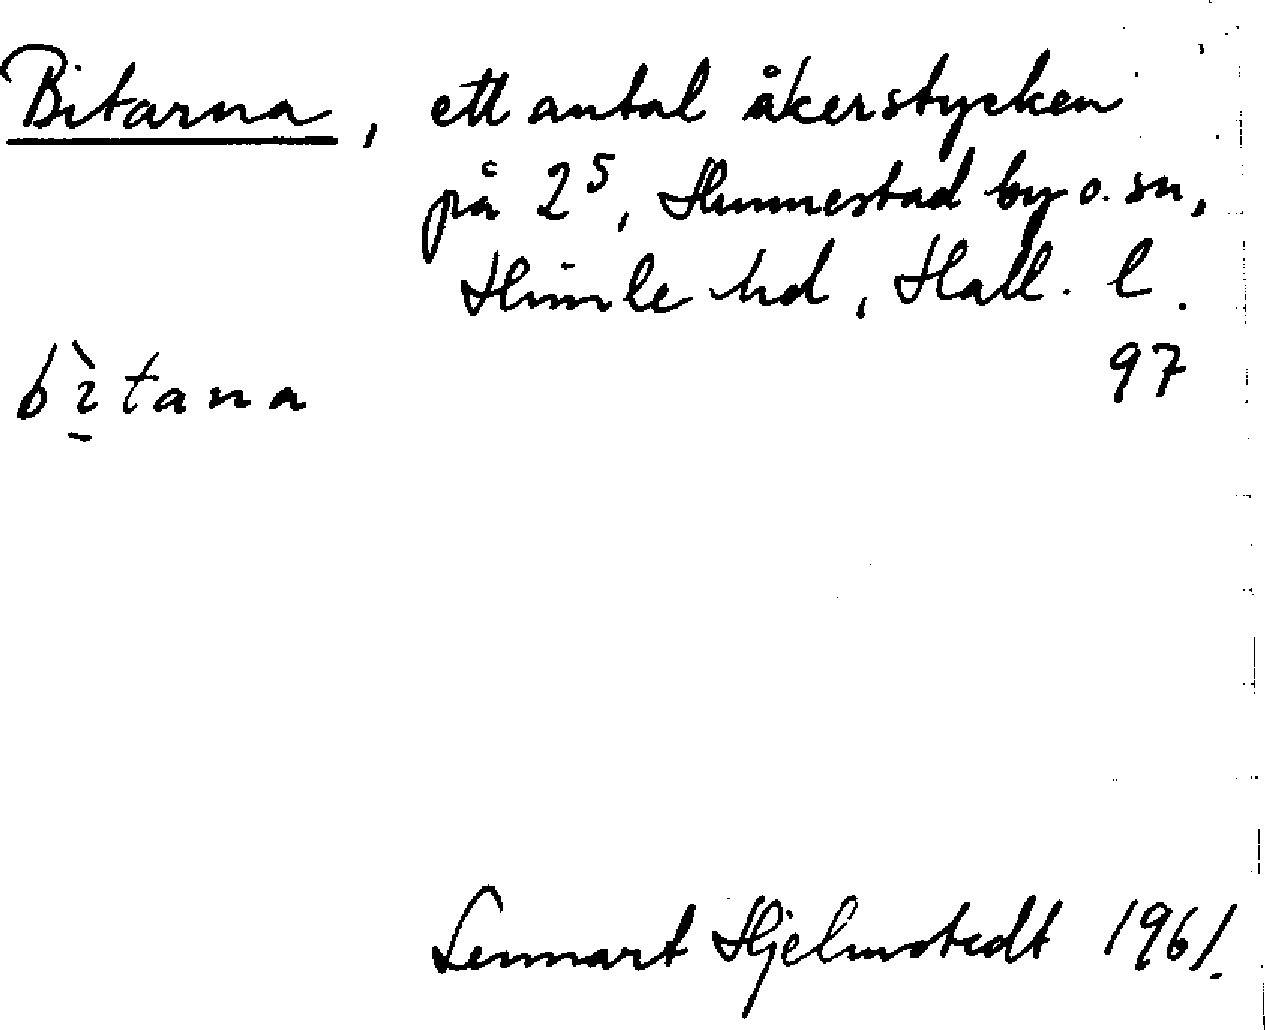 Bitarna, ett antal åkerstycken
på 2⁵, Hunnestad by o. sn,
Himle hd, Hall. l.
97
bı̠̀tana
Lennart Hjelmstedt 1961.